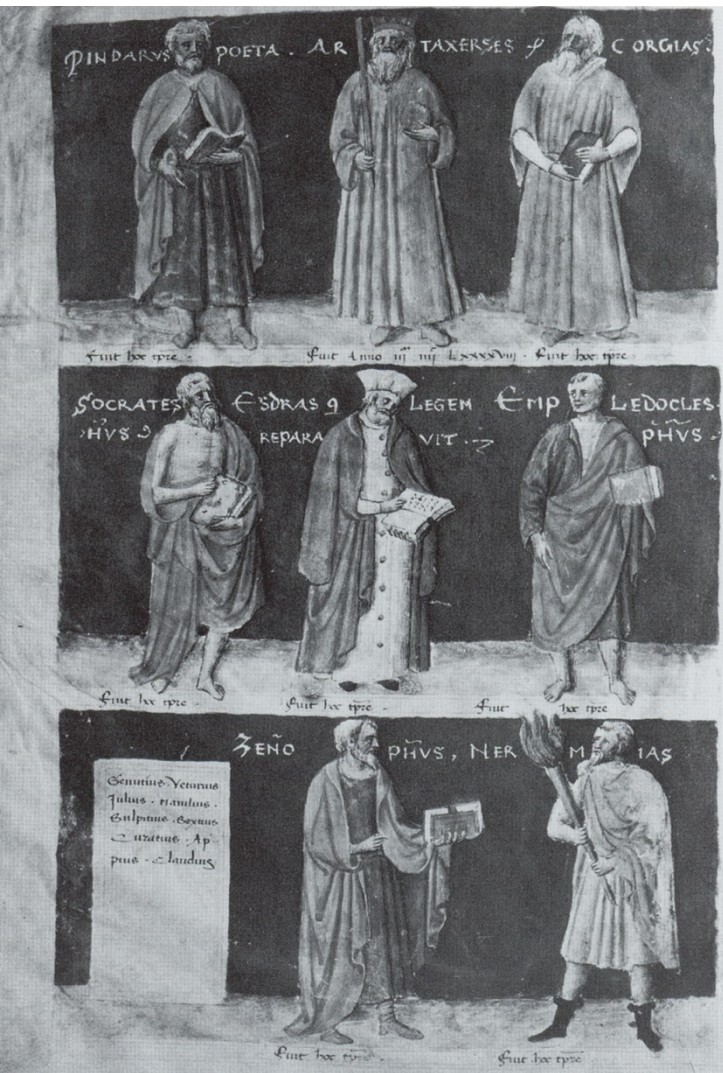 PINDARVS POETA. ARTAXERSES CORGIAS.
Fuit hoc tpre. Fuit Anno LXXXXVIII. Fuit hoc tpre
SOCRATES ESDRAS LEGEM EMPLEDOCLES.
PHVS REPARAVIT. PHVS.
Fuit hoc tpre. Fuit hoc tpre. Fuit hoc tpre
ZENO PHVS, NERMIAS
Genutius. Veturius
Julius. Manlius.
Sulpitius. Sextus
Curatius. Ap
pius. Claudius
Fuit hoc tpre. Fuit hoc tpre